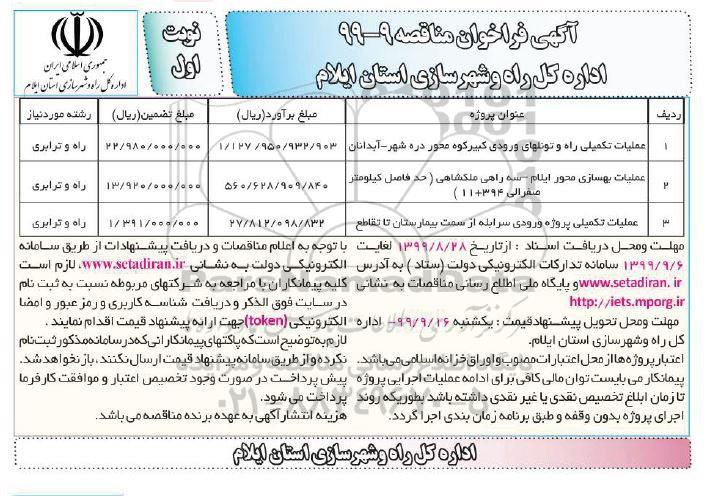 آگهی فراخوان مناقصه ۹-۹۹
اداره کل راه وشهرسازی استان ایلام
نوبت
اول
جمهوری اسلامی ایران
اداره کل راه وشهرسازی استان ایلام
ردیف عنوان پروژه مبلغ برآورد(ریال) مبلغ تضمین(ریال) رشته موردنیاز
۱ عملیات تکمیلی راه و تونلهای ورودی کبیرکوه محور دره شهر-آبدانان ۱/۱۲۷/۹۵۰/۹۳۲/۹۰۳ ۲۲/۹۸۰/۰۰۰/۰۰۰ راه و ترابری
۲ عملیات بهسازی محور ایلام -سه راهی ملکشاهی ( حد فاصل کیلومتر صفرالی ۳۹۴+۱۱ ) ۵۶۰/۶۲۸/۹۰۹/۸۴۰ ۱۳/۹۲۰/۰۰۰/۰۰۰ راه و ترابری
۳ عملیات تکمیلی پروژه ورودی سرابله از سمت بیمارستان تا تقاطع ۲۷/۸۱۲/۰۹۸/۸۳۲ ۱/۳۹۱/۰۰۰/۰۰۰ راه و ترابری
مهلت ومحل دریافت اسناد : ازتاریخ ۱۳۹۹/۸/۲۸ لغایت
۱۳۹۹/۹/۶ سامانه تدارکات الکترونیکی دولت (ستاد ) به آدرس
www.setadiran.ir و پایگاه ملی اطلاع رسانی مناقصات به نشانی
http://iets.mporg.ir
مهلت ومحل تحویل پیشنهادقیمت : یکشنبه ۹۹/۹/۱۶، اداره
کل راه وشهرسازی استان ایلام.
اعتبار پروژه ها از محل اعتبارات مصوب و اوراق خزانه اسلامی می باشد.
پیمانکار می بایست توان مالی کافی برای ادامه عملیات اجرایی پروژه
تا زمان ابلاغ تخصیص نقدی یا غیر نقدی داشته باشد بطوریکه روند
اجرای پروژه بدون وقفه و طبق برنامه زمان بندی اجرا گردد.
با توجه به اعلام مناقصات و دریافت پیشنهادات از طریق سامانه
الکترونیکی دولت به نشانی www.setadiran.ir، لازم است
کلیه پیمانکاران با مراجعه به شرکتهای مربوطه نسبت به ثبت نام
در سایت فوق الذکر و دریافت شناسه کاربری و رمز عبور و امضا
الکترونیکی (token) جهت ارائه پیشنهاد قیمت اقدام نمایند .
لازم به توضیح است که پاکتهای پیمانکارانی که در سامانه مذکور ثبت نام
نکرده و از طریق سامانه پیشنهاد قیمت ارسال نکنند، بازنخواهدشد.
پیش پرداخت در صورت وجود تخصیص اعتبار و موافقت کارفرما
پرداخت می شود.
هزینه انتشار آگهی به عهده برنده مناقصه می باشد.
اداره کل راه وشهرسازی استان ایلام
۰۲۱-۸۸۳۴۹۶۷۰-۵